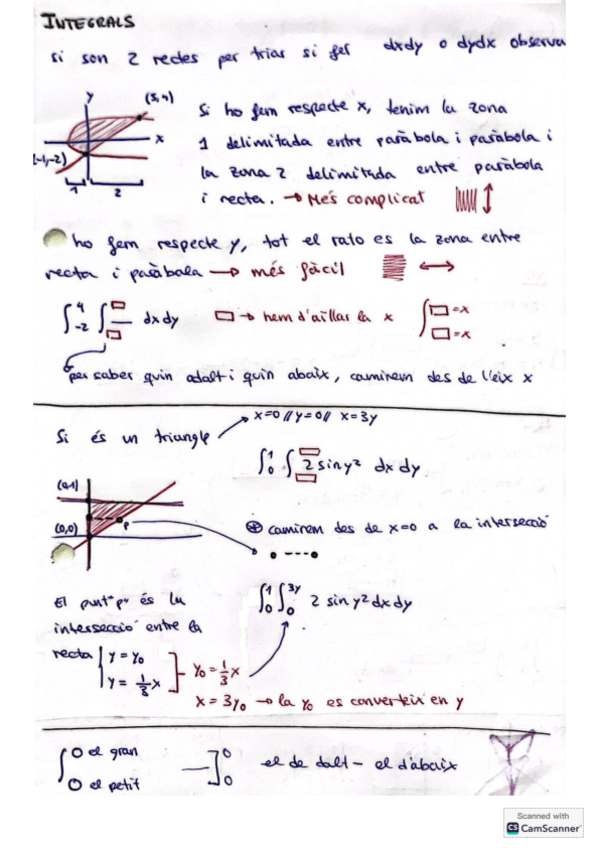 INTEGRALS
si son 2 rectes per trias si fer dxdy o dydx observa
y
(5,4)
x
(-1,-2)
1 2
Si ho fem respecte x, tenim la zona
1 delimitada entre paràbola i paràbola i
la zona 2 delimitada entre paràbola
i recta. → Més complicat
ho fem respecte y, tot el rato es la zona entre
recta i paràbola → més fàcil
∫₋₂⁴ ∫ dxdy □ → hem d'aïllar la x ∫ □=x □=x
per saber quin adalt i quin abaix, caminem des de l'eix x
Si és un triangle → x=0 // y=0 // x=3y
∫₀¹ ∫ 2 sin y² dx dy
(0,1)
P
(0,0)
⊕ caminem des de x=0 a la intersecció
El punt "p" és la
intersecció entre la
recta { y = y₀
y = 1/3 x
∫₀¹ ∫₀³ʸ 2 sin y² dx dy
y₀ = 1/3 x
x = 3y₀ → la y₀ es converteix en y
∫ O el gran
O el petit
— ]₀⁰ el de dalt - el d'abaix
Scanned with
CS CamScanner